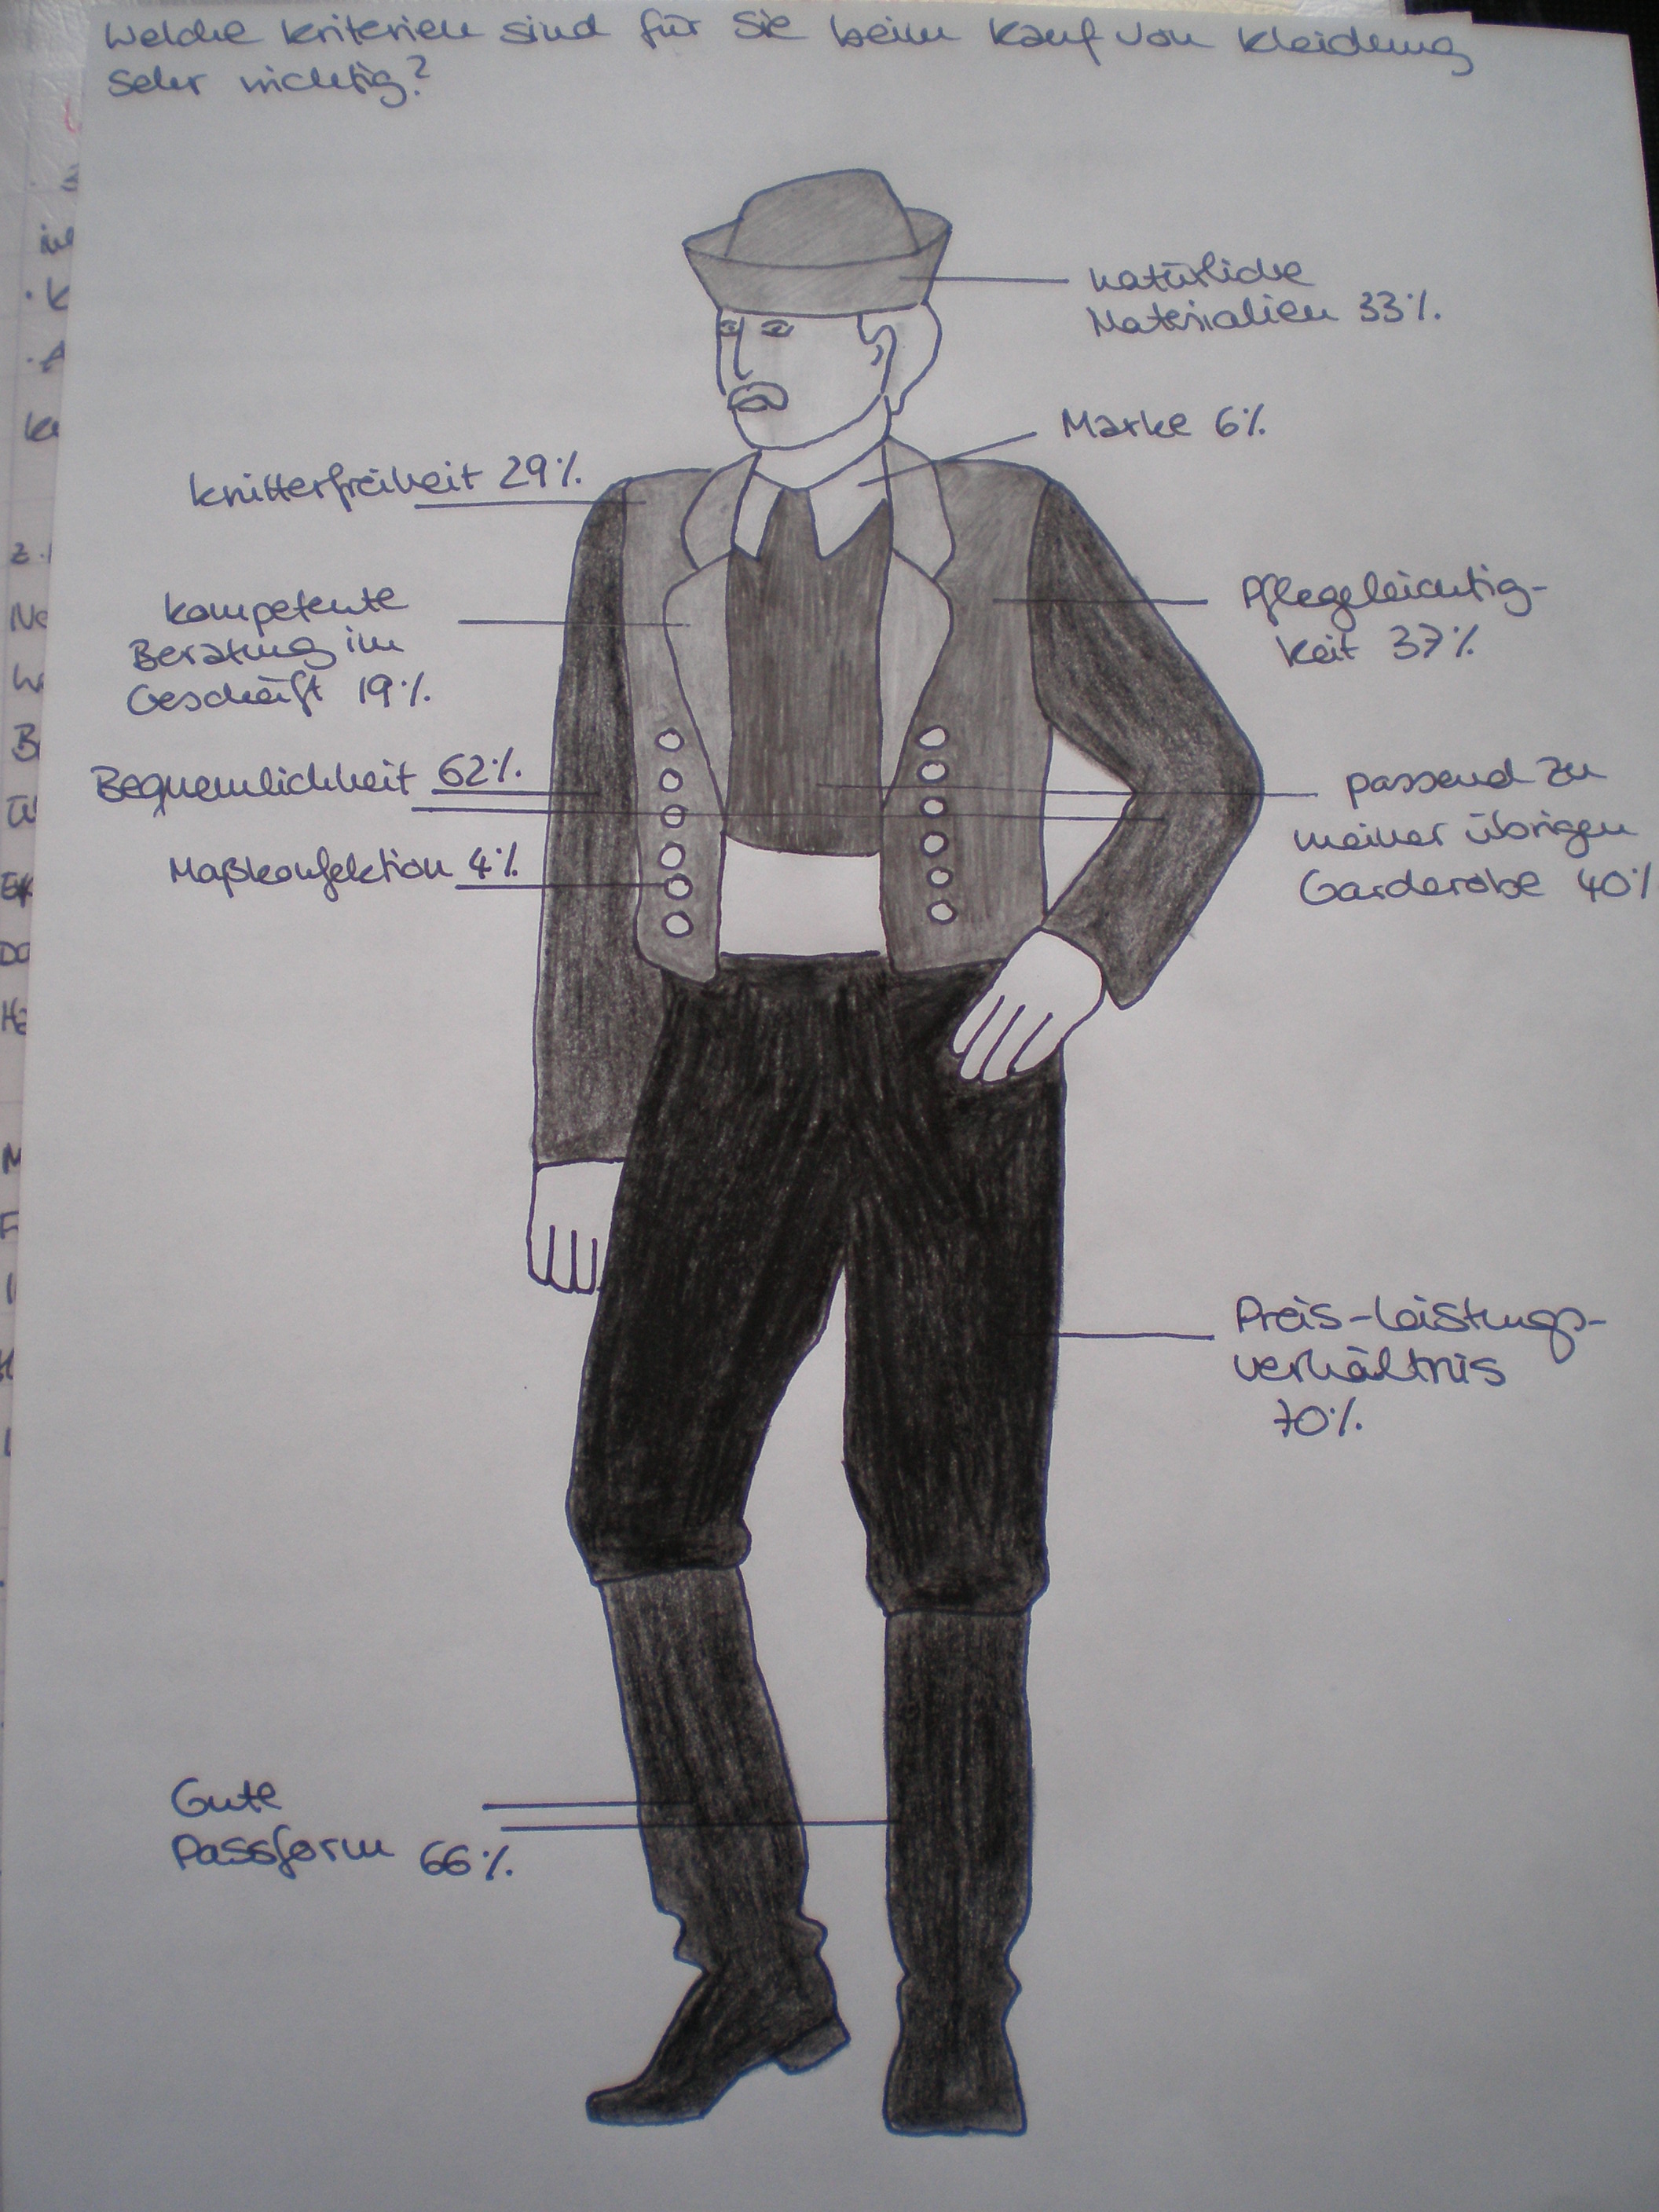 Welche Kriterien sind für Sie beim Kauf von Kleidung
sehr wichtig?
natürliche
Materialien 33%
Marke 6%
Knitterfreiheit 29%
kompetente
Beratung im
Geschäft 19%
Pflegeleichtig-
keit 37%
Bequemlichkeit 62%
passend zu
meiner übrigen
Garderobe 40%
Maßkonfektion 4%
Preis-Leistungs-
verhältnis
70%
Gute
Passform 66%